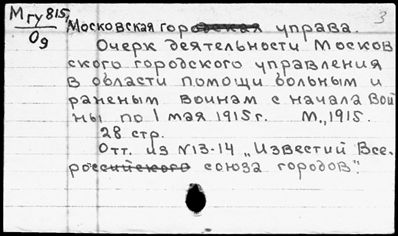 Мгу 815, Московская городская управа. 3
О9
Очерк деятельности Москов
ского городского управления
в области помощи больным и
раненым воинам с начала вой
ны по 1 мая 1915 г. М., 1915.
28 стр.
Отт. из N13-14 „Известий Все-
российского союза городов".